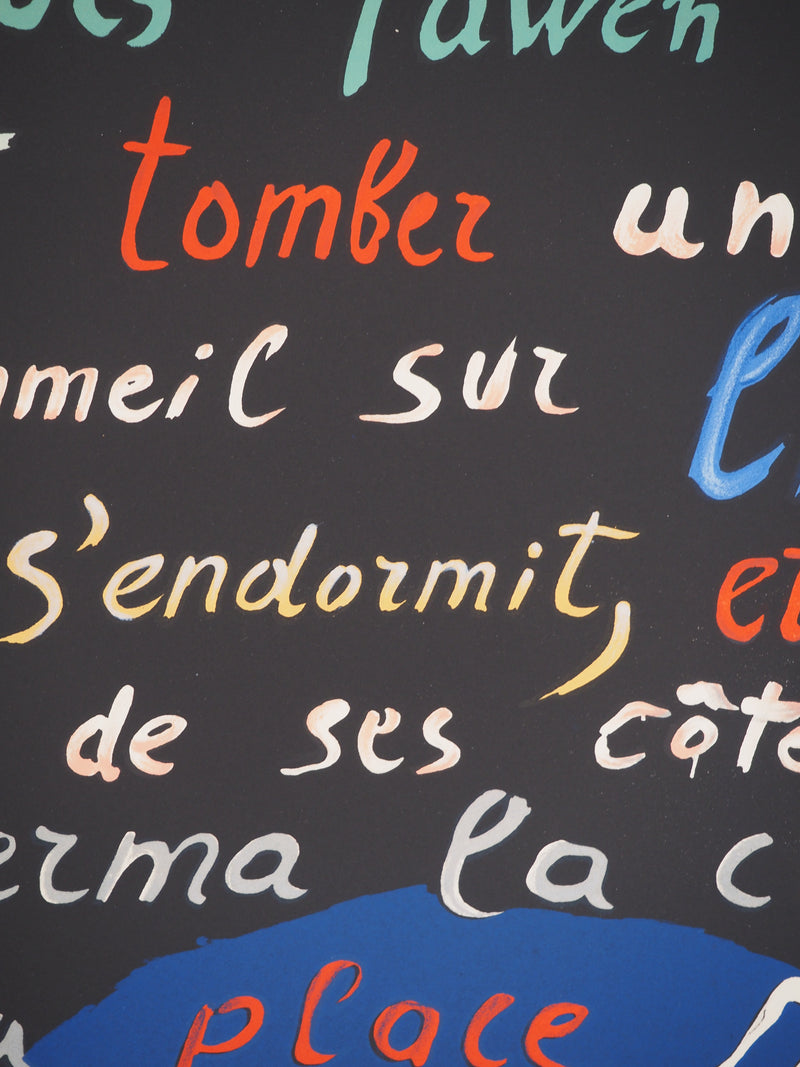 tomber un
mmeil sur
s'endormit, et
de ses côté
erma la c
place